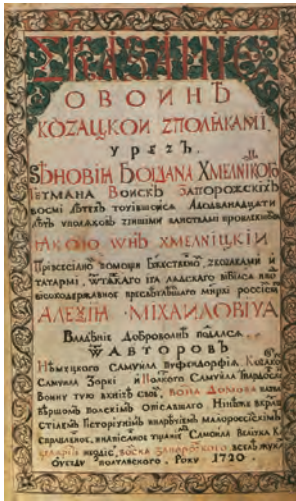 СКАЗАНИЕ
О ВОИНѢ
КОЗАЦКОЙ ЗПОЛЯКАМИ,
УРЕЗЪ,
ЅѢНОВІЯ БОГДАНА ХМЕЛНІКОГО
ГЕТМАНА ВОИСКЪ ЗАПОРОЖСКІХЪ
ВОСМІ ЛѢТЕХЪ
ЛѢТЪ УПОЛЯКОВЪ ЗИНШИМИ ПАНСТВАМИ
ЯКОЮ ѠНЪ ХМЕЛНІЦКІЙ
ПРИ ВСЕСІЛНО ПОМОЩИ БЖЕСТВЕНО, ЗКОЗАКАМИ И
ТАТАРМІ, ѠТЯЖКАГО ІГА ЛЯДСКАГО ВІБІЛСЯ
ВІСОКОДЕРЖАВНОЕ ПРЕСВѢТЛѢЙШАГО МНРХІ РОССІЙ
АЛЕѮІЯ МІХАИЛОВІЧА
ВЛАДѢНІЕ ДОБРОВОЛНѢ ПОДАЛСЯ.
Ѡ АВТОРОВЪ
НѢМЕЦКОГО САМУИЛА ПУФЕНДОРФІЯ, КОЗАКО
САМУИЛА ЗОРКІ И ПОЛКОГО САМУИЛА ТВАРДОС
ВОИНУ ТУЮ ВКНІЗѢ СВОЕ, ВОЙНА ДОМОВА
ВѢРШОМЪ ПОЛСКІМЪ ОПІСАВШАГО НИНѢЖЕ
СТІЛЕМЪ ГІСТОРІЧНІМЪ И НАРѢЧІЕМЪ МАЛОРОССІЙСКІМЪ
СПРАВЛЕНОЕ, И НАПІСАНОЕ ТЩАНІЕ САМОИЛА ВЕЛІЧКА
КАНЦЕЛЯРИИ ВОЙСКА ЗАПОРОЗКОГО ВСЕЛѢ ЖУКА
УЕЗДУ ПОЛТАВСКОГО, РОКУ 1720